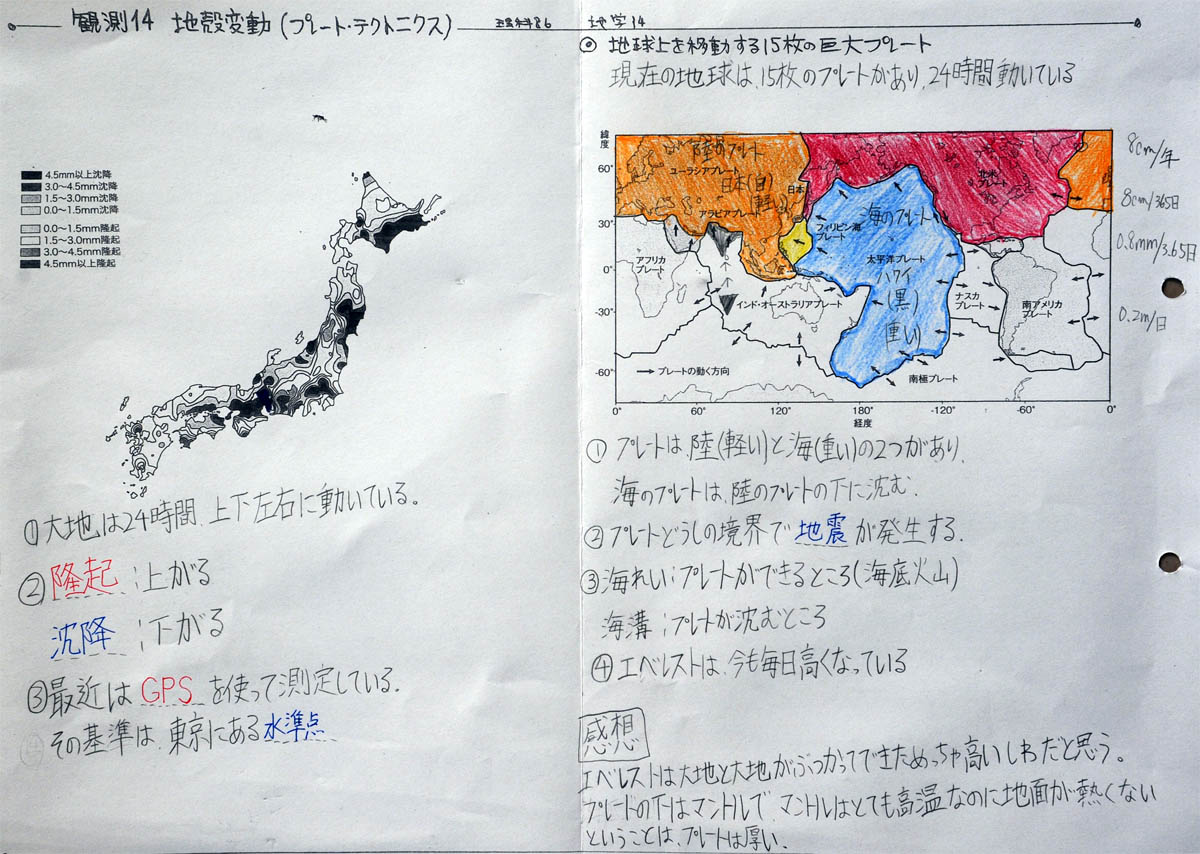 観測14 地殻変動(プレート・テクトニクス)
理科86
地学14
4.5mm以上沈降
3.0〜4.5mm沈降
1.5〜3.0mm沈降
0.0〜1.5mm沈降
0.0〜1.5mm隆起
1.5〜3.0mm隆起
3.0〜4.5mm隆起
4.5mm以上隆起
①大地は24時間、上下左右に動いている。
②隆起:上がる
沈降:下がる
③最近はGPSを使って測定している。
その基準は、東京にある水準点
◎地球上を移動する15枚の巨大プレート
現在の地球は、15枚のプレートがあり、24時間動いている
緯度
60°
30°
0°
-30°
-60°
陸のプレート
ユーラシアプレート
日本(白)
(軽い)
日本
アラビアプレート
北米プレート
海のプレート
フィリピン海プレート
アフリカプレート
太平洋プレート
ハワイ
(黒)
(重い)
インド・オーストラリアプレート
ナスカプレート
南アメリカプレート
南極プレート
→プレートの動く方向
0° 60° 120° 180° -120° -60° 0°
経度
8cm/年
8cm/365日
0.8mm/3.65日
0.2m/日
①プレートは、陸(軽い)と海(重い)の2つがあり、
海のプレートは、陸のプレートの下に沈む。
②プレートどうしの境界で地震が発生する。
③海れい:プレートができるところ(海底火山)
海溝:プレートが沈むところ
④エベレストは、今も毎日高くなっている
感想
エベレストは大地と大地がぶつかってできためっちゃ高いしわだと思う。
プレードの下はマントルで、マントルはとても高温なのに地面が熱くない
ということは、プレートは厚い。